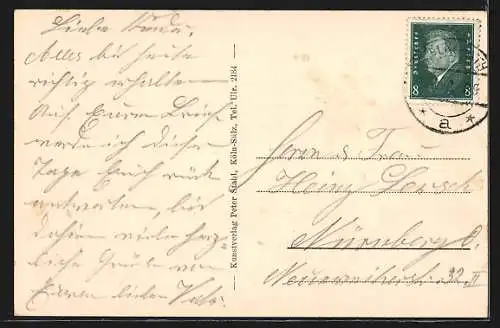 Liebe Kinder,
Alles bis heute
richtig erhalten
Auf Euern Brief
werde ich dieser
Tage Euch rück
antworten, bis
dahin viele herz
liche Grüße von
Euerm lieben Vater
Kunstverlag Peter Stahl, Köln-Sülz, Tel. Ulr. 2184
DEUTSCHES REICH
8 8
* a *
Herrn & Frau
Heinz
Nürnberg O.
32 II